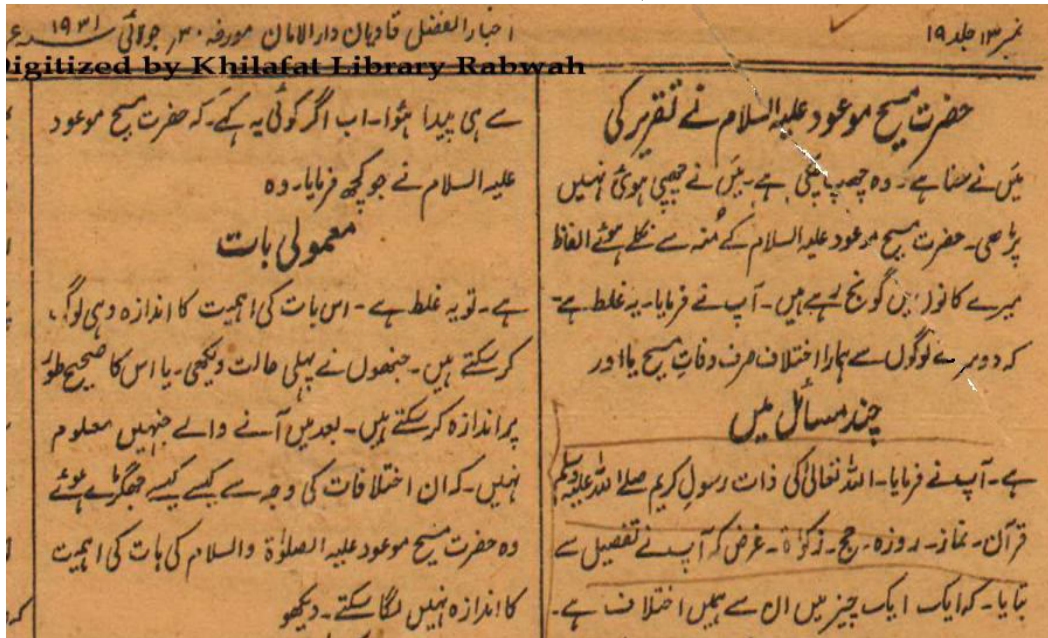 نمبر ۱۳ جلد ۱۹
اخبار الفضل قادیان دارالامان مورخہ ۳۰ جولائی ۱۹۳۱ء
Digitized by Khilafat Library Rabwah
حضرت مسیح موعود علیہ السلام نے تقریر کی
میں نے سنا ہے۔ وہ چھپ چکی ہے۔ میں نے چھپی ہوئی نہیں
پڑھی۔ حضرت مسیح موعود علیہ السلام کے مُنہ سے نکلے ہوئے الفاظ
میرے کانوں میں گونج رہے ہیں۔ آپ نے فرمایا۔ یہ غلط ہے۔
کہ دوسرے لوگوں سے ہمارا اختلاف صرف وفاتِ مسیح یا اور
چند مسائل میں
ہے۔ آپ نے فرمایا۔ اللہ تعالیٰ کی ذات رسول کریم صلے اللہ علیہ وسلم
قرآن۔ نماز۔ روزہ۔ حج۔ زکوٰۃ۔ غرض کہ آپ نے تفصیل سے
بتایا۔ کہ ایک ایک چیز میں ان سے ہمیں اختلاف ہے۔
سے ہی پیدا ہؤا۔ اب اگر کوئی یہ کہے۔ کہ حضرت مسیح موعود
علیہ السلام نے جو کچھ فرمایا۔ وہ
معمولی بات
ہے۔ تو یہ غلط ہے۔ اس بات کی اہمیت کا اندازہ وہی لوگ
کر سکتے ہیں۔ جنھوں نے پہلی حالت دیکھی۔ یا اس کا صحیح طور
پر اندازہ کر سکتے ہیں۔ بعد میں آنے والے جنہیں معلوم
نہیں۔ کہ ان اختلافات کی وجہ سے کیسے کیسے جھگڑے ہوئے
وہ حضرت مسیح موعود علیہ الصلوٰۃ والسلام کی بات کی اہمیت
کا اندازہ نہیں لگا سکتے۔ دیکھو